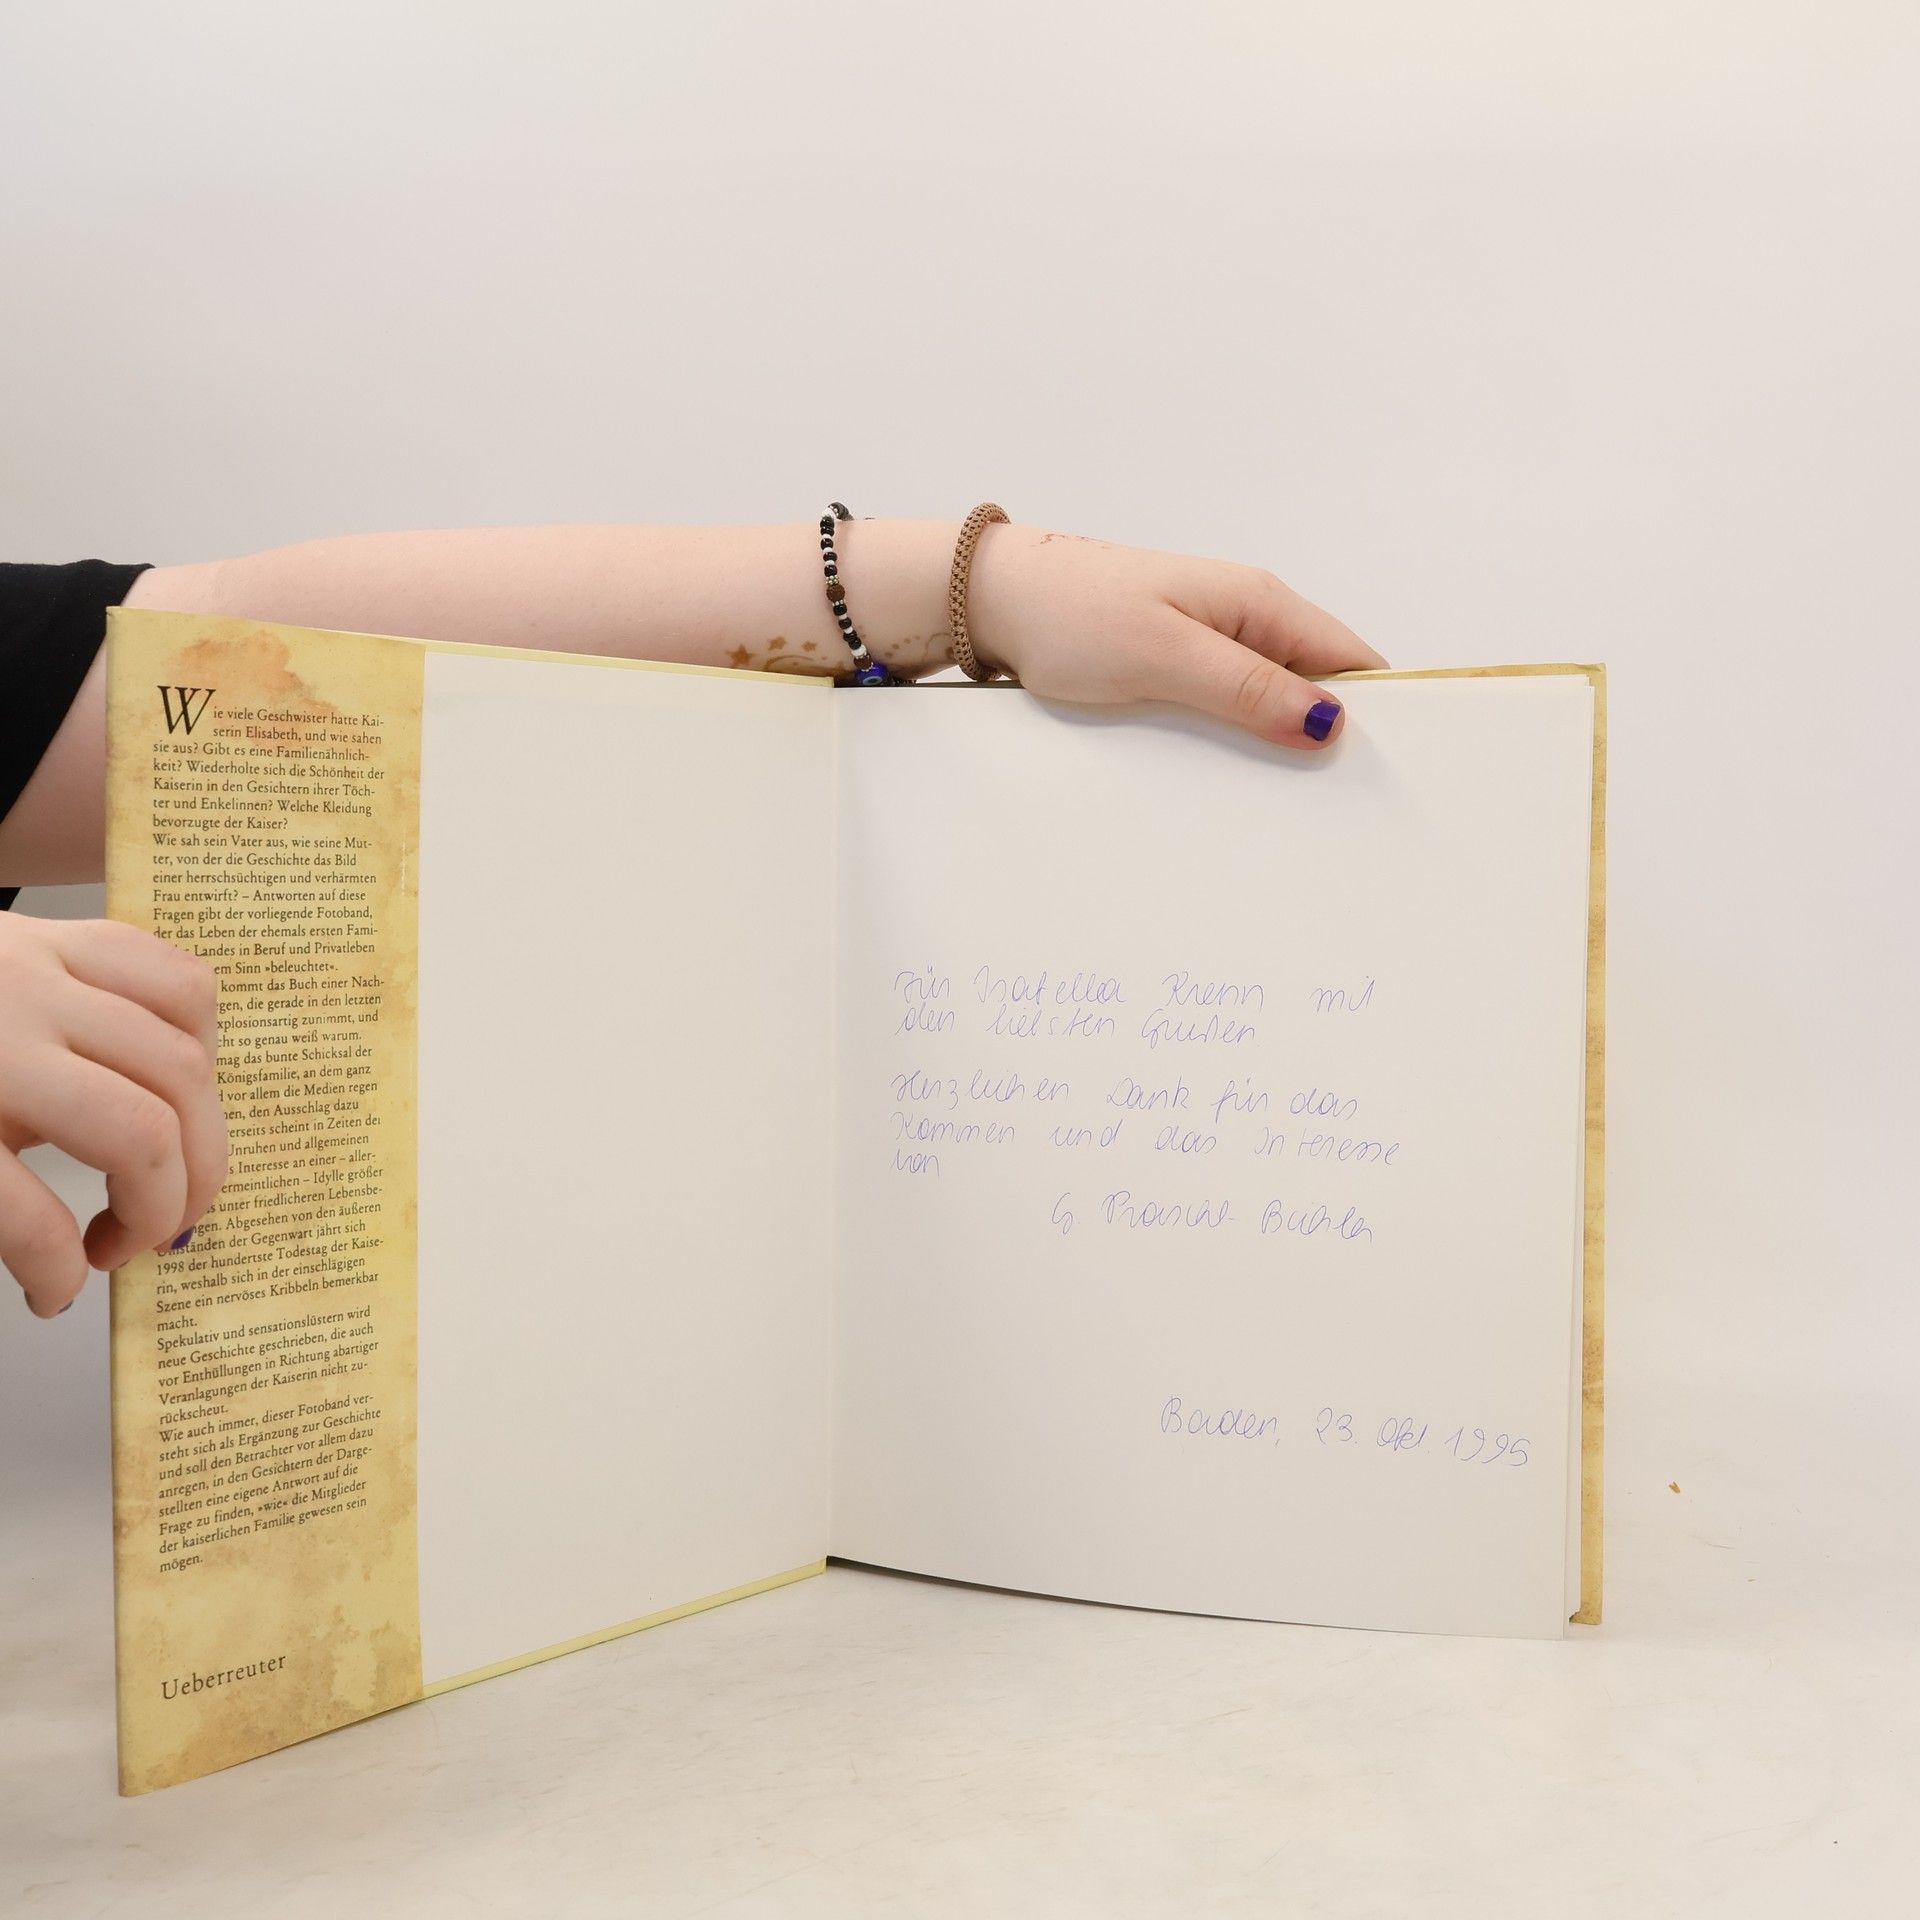 Wie viele Geschwister hatte Kai-
serin Elisabeth, und wie sahen
sie aus? Gibt es eine Familienähnlich-
keit? Wiederholte sich die Schönheit der
Kaiserin in den Gesichtern ihrer Töch-
ter und Enkelinnen? Welche Kleidung
bevorzugte der Kaiser?
Wie sah sein Vater aus, wie seine Mut-
ter, von der die Geschichte das Bild
einer herrschsüchtigen und verhärmten
Frau entwirft? – Antworten auf diese
Fragen gibt der vorliegende Fotoband,
der das Leben der ehemals ersten Fami-
Landes in Beruf und Privatleben
em Sinn »beleuchtet«.
kommt das Buch einer Nach-
egen, die gerade in den letzten
xplosionsartig zunimmt, und
cht so genau weiß warum.
mag das bunte Schicksal der
Königsfamilie, an dem ganz
d vor allem die Medien regen
men, den Ausschlag dazu
erseits scheint in Zeiten der
Unruhen und allgemeinen
s Interesse an einer – aller-
ermeintlichen – Idylle größer
s unter friedlicheren Lebensbe-
ngen. Abgesehen von den äußeren
Umständen der Gegenwart jährt sich
1998 der hundertste Todestag der Kaise-
rin, weshalb sich in der einschlägigen
Szene ein nervöses Kribbeln bemerkbar
macht.
Spekulativ und sensationslüstern wird
neue Geschichte geschrieben, die auch
vor Enthüllungen in Richtung abartiger
Veranlagungen der Kaiserin nicht zu-
rückscheut.
Wie auch immer, dieser Fotoband ver-
steht sich als Ergänzung zur Geschichte
und soll den Betrachter vor allem dazu
anregen, in den Gesichtern der Darge-
stellten eine eigene Antwort auf die
Frage zu finden, »wie« die Mitglieder
der kaiserlichen Familie gewesen sein
mögen.
Ueberreuter
Für Isabella Krenn mit
den liebsten Grüßen
Herzlichen Dank für das
Kommen und das Interesse
von
G. Praschl-Bichler
Baden, 23. Okt. 1995